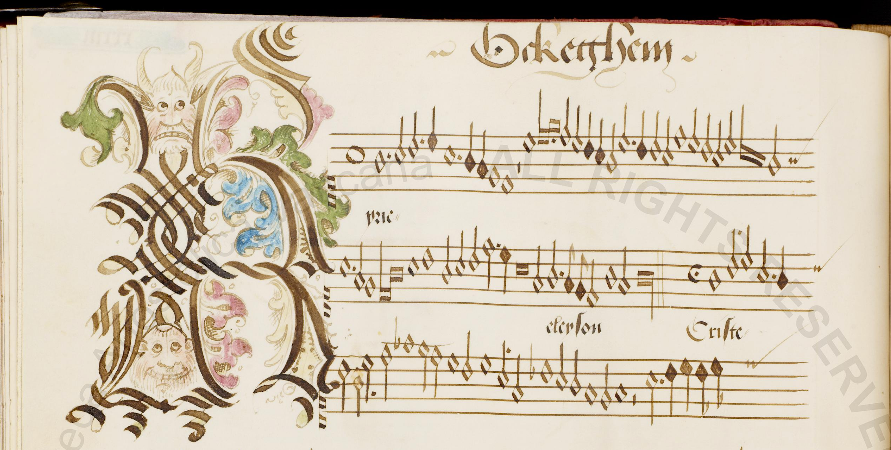 Ockeghem
yrie
eleyson Criste
ALL RIGHTS RESERVE